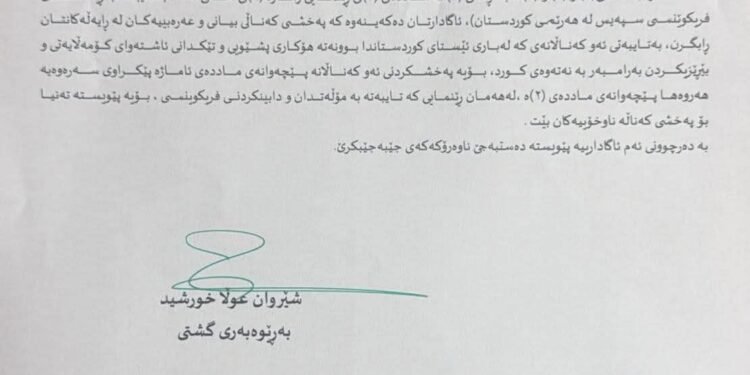 فریکوێنسی سپەیس لە هەرێمی کوردستان)، ئاگادارتان دەکەینەوە کە پەخشی کەناڵی بیانی و عەرەبییەکان لە ڕایەڵەکانتان
ڕابگرن، بەتایبەتی ئەو کەناڵانەی کە لەباری ئێستای کوردستاندا بوونەتە هۆکاری پشێویی و تێکدانی ئاشتەوای کۆمەڵایەتی و
بێڕێزیکردن بەرامبەر بە نەتەوەی کورد، بۆیە پەخشکردنی ئەو کەناڵانە پێچەوانەی ماددەی ئاماژە پێکراوی سەرەوەیە
هەروەها پێچەوانەی ماددەی (٢)ە ،لەهەمان ڕێنمایی کە تایبەتە بە مۆڵەتدان و دابینکردنی فریکوێنسی ، بۆیە پێویستە تەنیا
بۆ پەخشی کەناڵە ناوخۆییەکان بێت .
بە دەرچوونی ئەم ئاگادارییە پێویستە دەستبەجێ ناوەڕۆکەکەی جێبەجێبکرێ.
شێروان عوڵا خورشید
بەڕێوەبەری گشتی